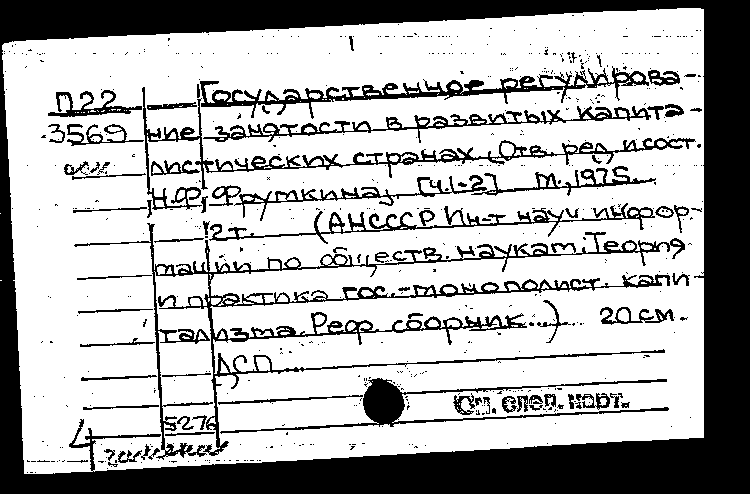 П22 Государственное регулирова-
3569 ние занятости в развитых капита-
листических странах. Отв. ред. и сост.
Н.Ф. Фрумкина, [ч.1-2] М., 1975.
2 т. (АН СССР. Ин-т науч. инфор-
мации по обществ. наукам. Теория
и практика гос.-монополист. капи-
тализма. Реф. сборник...) 20 см.
ДСП...
5276 См. след. карт.
4